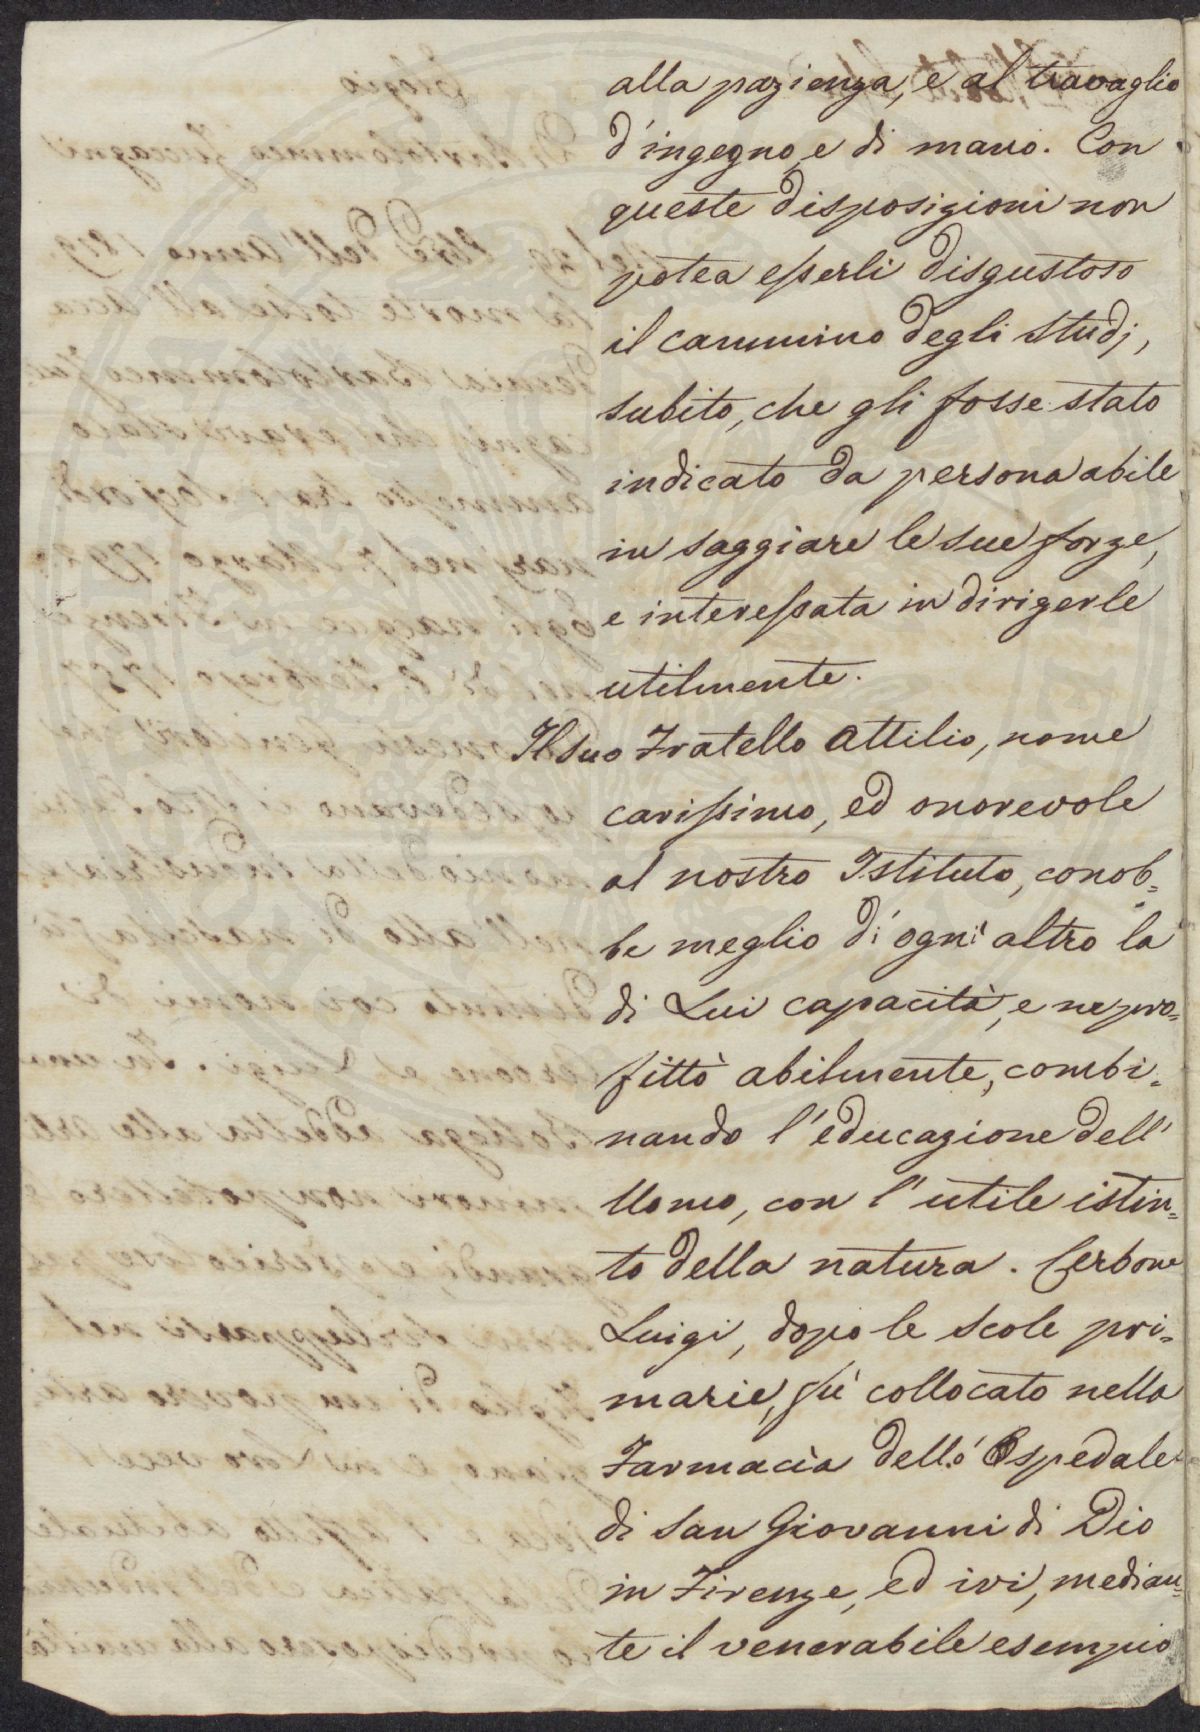 alla pazienza, e al travaglio
d'ingegno, e di mano. Con
queste disposizioni non
potea esserli disgustoso
il cammino degli studj,
subito, che gli fosse stato
indicato da persona abile
in saggiare le sue forze,
e interessata in dirigerle
utilmente.
Il suo Fratello Attilio, nome
carissimo, ed onorevole
al nostro Istituto, conob=
be meglio di ogni altro la
di Lui capacità, e ne pro=
fittò abilmente, combi=
nando l'educazione dell'
Uomo, con l'utile istin=
to della natura. Cerbone
Luigi, dopo le scole pri=
marie, fù collocato nella
Farmacia dello Ospedale
di San Giovanni di Dio
in Firenze, ed ivi, median=
te il venerabile esempio